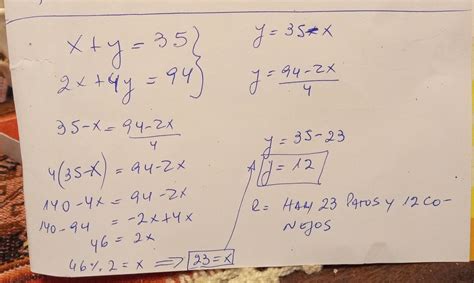 x+y = 35
2x+4y = 94
35-x = 94-2x/4
4(35-x) = 94-2x
140-4x = 94-2x
140-94 = -2x+4x
46 = 2x
46%2 = x ⇒ 23=x
y = 35-x
y = 94-2x/4
y = 35-23
y = 12
R= HAY 23 PATOS Y 12 CO-
NEJOS